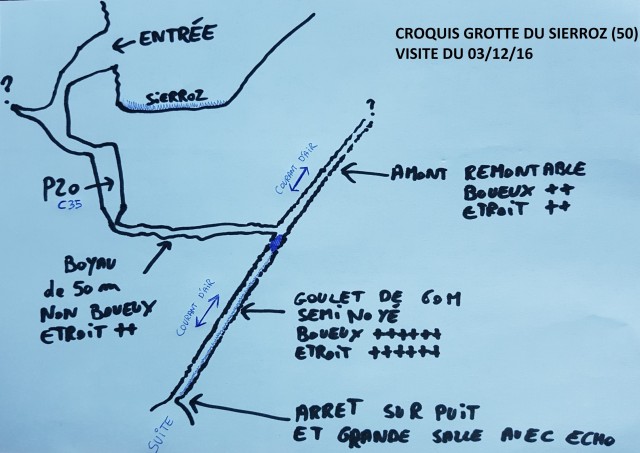 CROQUIS GROTTE DU SIERROZ (50)
VISITE DU 03/12/16
ENTRÉE
?
SIERROZ
?
COURANT D'AIR
AMONT REMONTABLE
BOUEUX ++
ETROIT ++
P20
C35
BOYAU
de 50 m
NON BOUEUX
ETROIT ++
COURANT D'AIR
GOULET DE 60M
SEMI NOYÉ
BOUEUX ++++++
ETROIT ++++++
ARRET SUR PUIT
ET GRANDE SALLE AVEC ECHO
SUITE